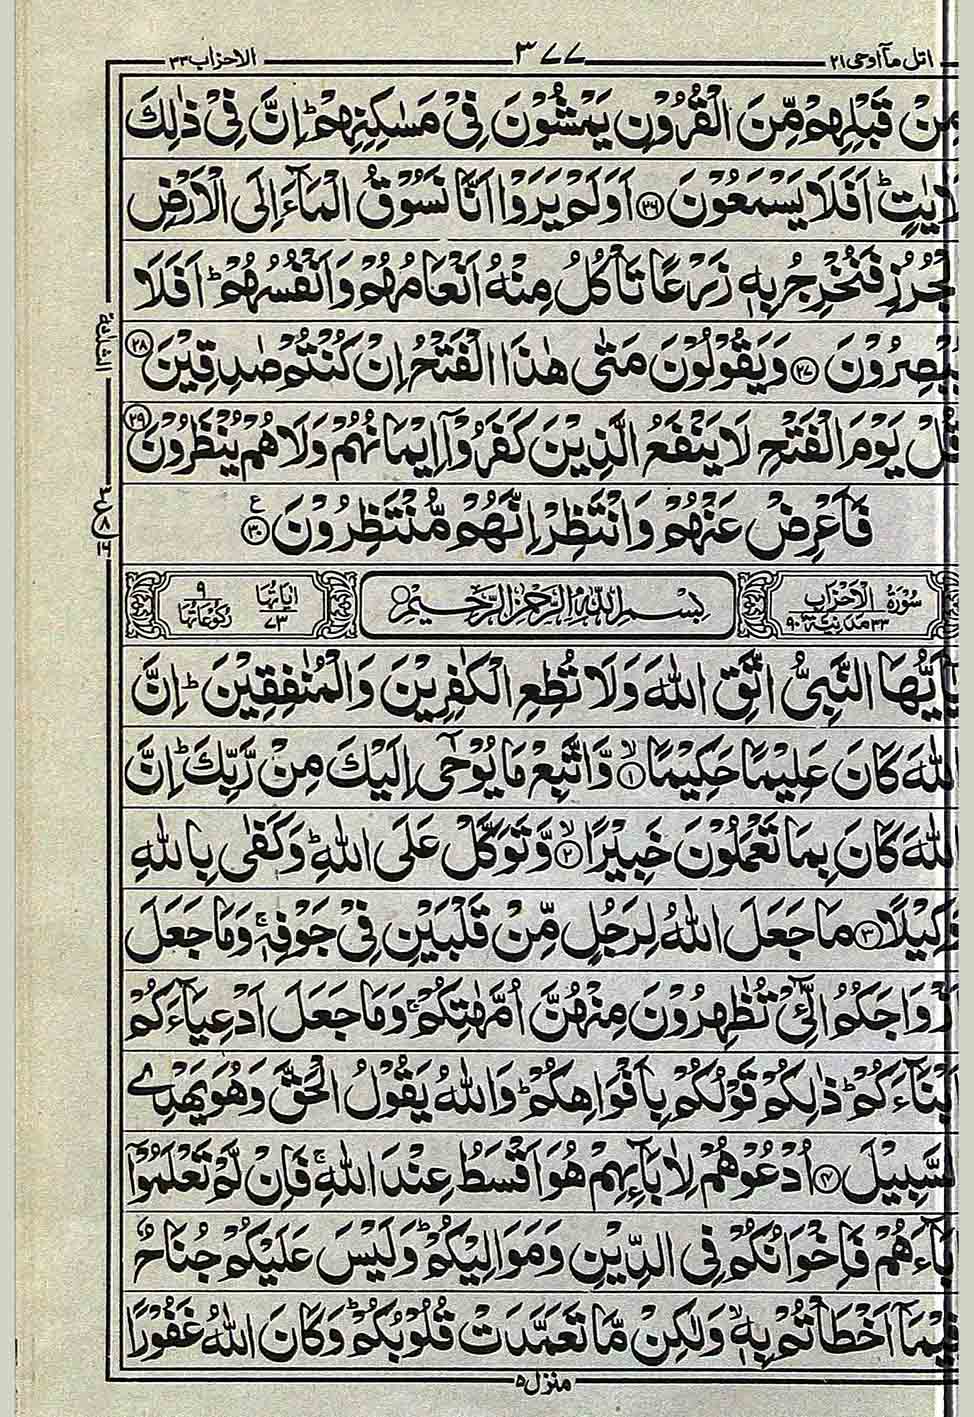 اتل مآ اوحی ۲۱ ۳۷۷ الاحزاب ۳۳
مِنْ قَبْلِهِمْ مِّنَ الْقُرُوْنِ يَمْشُوْنَ فِيْ مَسٰكِنِهِمْ ؕ اِنَّ فِيْ ذٰلِكَ
لَاٰيٰتٍ ؕ اَفَلَا يَسْمَعُوْنَ ﴿۲۶﴾ اَوَلَمْ يَرَوْا اَنَّا نَسُوْقُ الْمَآءَ اِلَى الْاَرْضِ
الْجُرُزِ فَنُخْرِجُ بِهٖ زَرْعًا تَاْكُلُ مِنْهُ اَنْعَامُهُمْ وَاَنْفُسُهُمْ ؕ اَفَلَا
يُبْصِرُوْنَ ﴿۲۷﴾ وَيَقُوْلُوْنَ مَتٰى هٰذَا الْفَتْحُ اِنْ كُنْتُمْ صٰدِقِيْنَ ﴿۲۸﴾
قُلْ يَوْمَ الْفَتْحِ لَا يَنْفَعُ الَّذِيْنَ كَفَرُوْۤا اِيْمَانُهُمْ وَلَا هُمْ يُنْظَرُوْنَ ﴿۲۹﴾
فَاَعْرِضْ عَنْهُمْ وَانْتَظِرْ اِنَّهُمْ مُّنْتَظِرُوْنَ ﴿۳۰﴾ ع
سُوْرَةُ الْاَحْزَابِ ۳۳ مَدَنِيَّةٌ ۹۰ بِسْمِ اللّٰهِ الرَّحْمٰنِ الرَّحِيْمِ اٰيَاتُهَا ۷۳ رُكُوْعَاتُهَا ۹
يٰۤاَيُّهَا النَّبِيُّ اتَّقِ اللّٰهَ وَلَا تُطِعِ الْكٰفِرِيْنَ وَالْمُنٰفِقِيْنَ ؕ اِنَّ
اللّٰهَ كَانَ عَلِيْمًا حَكِيْمًا ﴿۱﴾ۙ وَّاتَّبِعْ مَا يُوْحٰۤى اِلَيْكَ مِنْ رَّبِّكَ ؕ اِنَّ
اللّٰهَ كَانَ بِمَا تَعْمَلُوْنَ خَبِيْرًا ﴿۲﴾ۙ وَّتَوَكَّلْ عَلَى اللّٰهِ ؕ وَكَفٰى بِاللّٰهِ
وَكِيْلًا ﴿۳﴾ مَا جَعَلَ اللّٰهُ لِرَجُلٍ مِّنْ قَلْبَيْنِ فِيْ جَوْفِهٖ ۚ وَمَا جَعَلَ
اَزْوَاجَكُمُ الّٰٓـِٔيْ تُظٰهِرُوْنَ مِنْهُنَّ اُمَّهٰتِكُمْ ۚ وَمَا جَعَلَ اَدْعِيَآءَكُمْ
اَبْنَآءَكُمْ ؕ ذٰلِكُمْ قَوْلُكُمْ بِاَفْوَاهِكُمْ ؕ وَاللّٰهُ يَقُوْلُ الْحَقَّ وَهُوَ يَهْدِي
السَّبِيْلَ ﴿۴﴾ اُدْعُوْهُمْ لِاٰبَآىِٕهِمْ هُوَ اَقْسَطُ عِنْدَ اللّٰهِ ۚ فَاِنْ لَّمْ تَعْلَمُوْۤا
اٰبَآءَهُمْ فَاِخْوَانُكُمْ فِي الدِّيْنِ وَمَوَالِيْكُمْ ؕ وَلَيْسَ عَلَيْكُمْ جُنَاحٌ
فِيْمَاۤ اَخْطَاْتُمْ بِهٖ ۙ وَلٰكِنْ مَّا تَعَمَّدَتْ قُلُوْبُكُمْ ؕ وَكَانَ اللّٰهُ غَفُوْرًا
منزل ۵